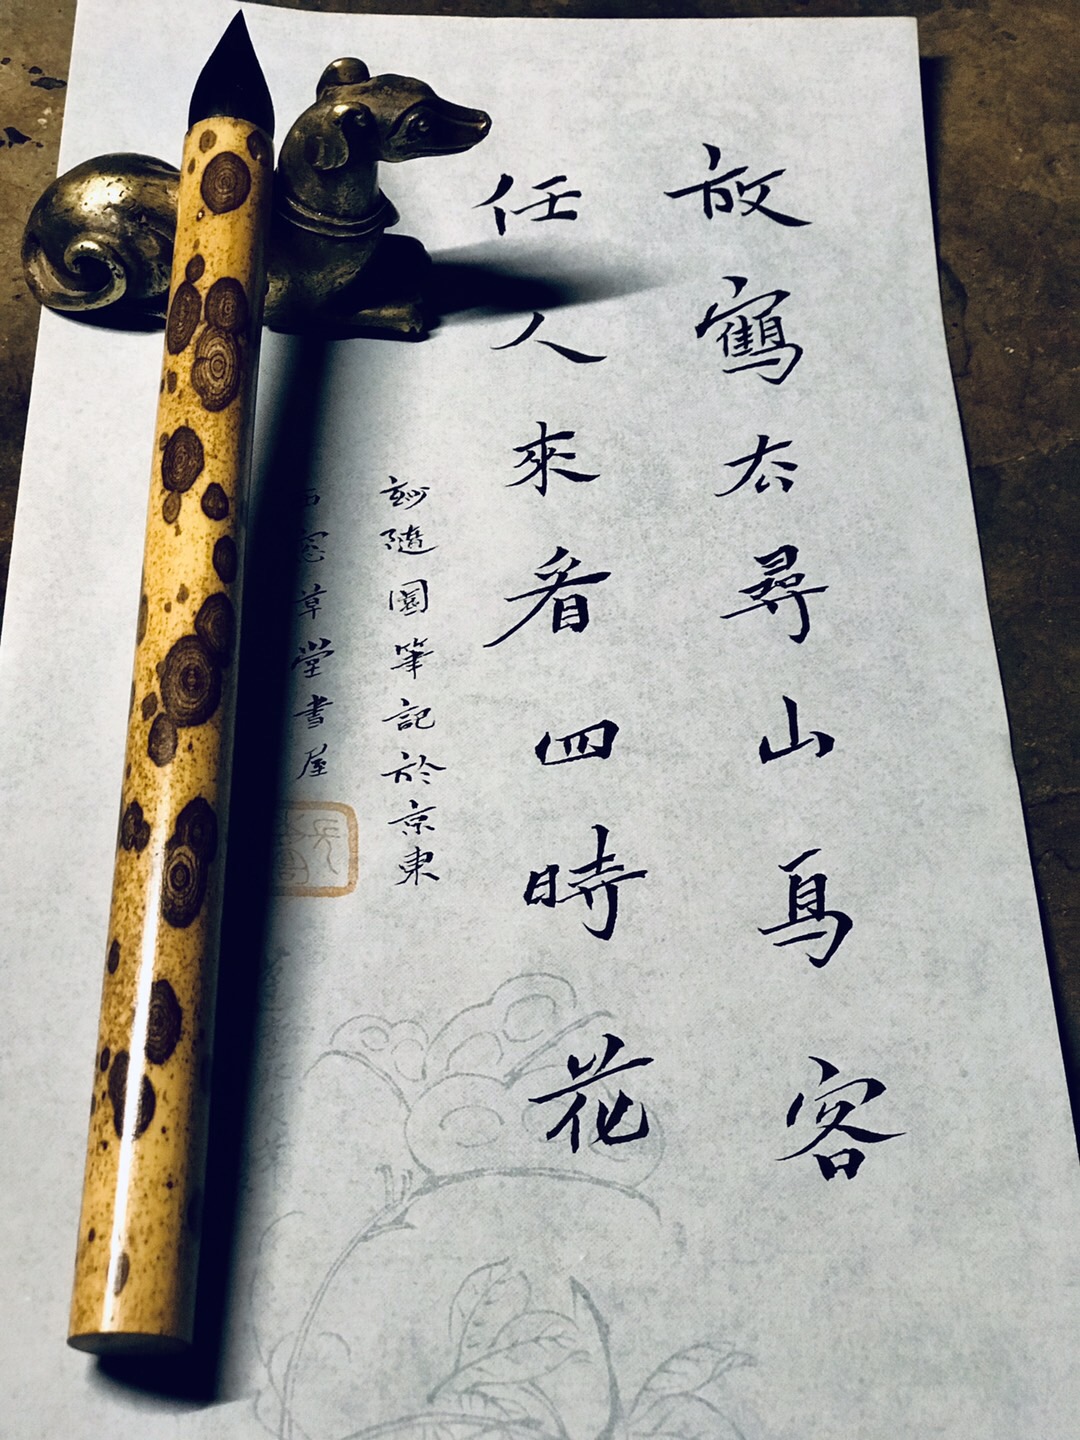 放鶴厺尋山鳥客
任人來看四時花
隨園筆記於京東
窓草堂書屋